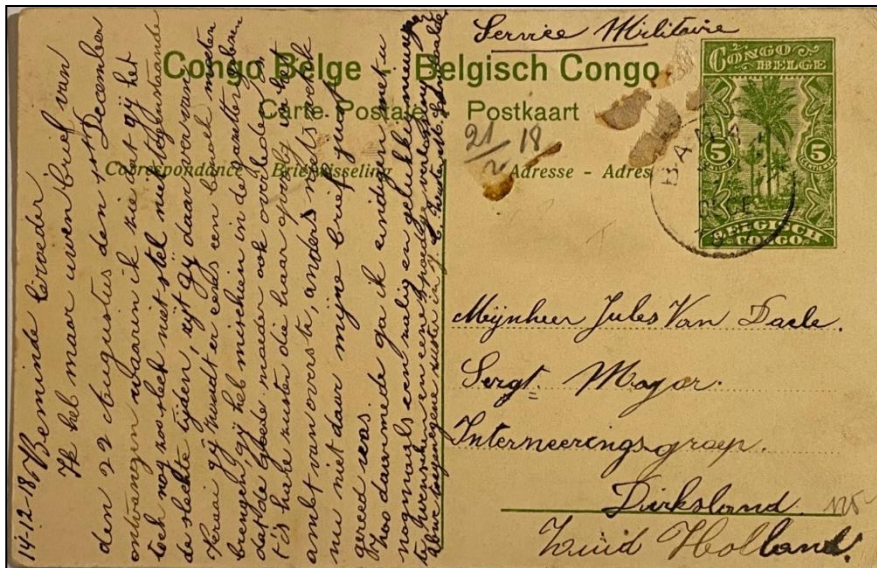 Service Militaire
Congo Belge Belgisch Congo
Carte Postale Postkaart
21/2 18
Correspondance - Briefwisseling
Adresse - Adres
CONGO BELGE
5 5
BELGISCH CONGO
BANA
Mijnheer Jules Van Daele.
Sergt. Mayor.
Interneerings groep.
Dirksland.
Zuid Holland
14-12-18, Beminde Broeder
Ik heb maar uwen brief van
den 22 Augustus den December
ontvangen waarin ik zie dat gij het
toch nog zoo slecht niet stel niettegenstaande
de slechte tijden, zijt gij daar ver van
gij zoudt er eens een bezoek moeten
brengen, gij heb misschien in de gebreven
dat de goede moeder ook overleden is
t'is halve zuster die haar in het
ambt van overste, anders niets vertrek
nu niet daar mijne brief juist
gereed was.
hoo daarmede ga ik eindigen met u
nogmaals een zalig en gelukkig nieuwjaar
te wenschen en eene spoedige verlossing
uwe toegenegene zuster in J. C. Zuster M.